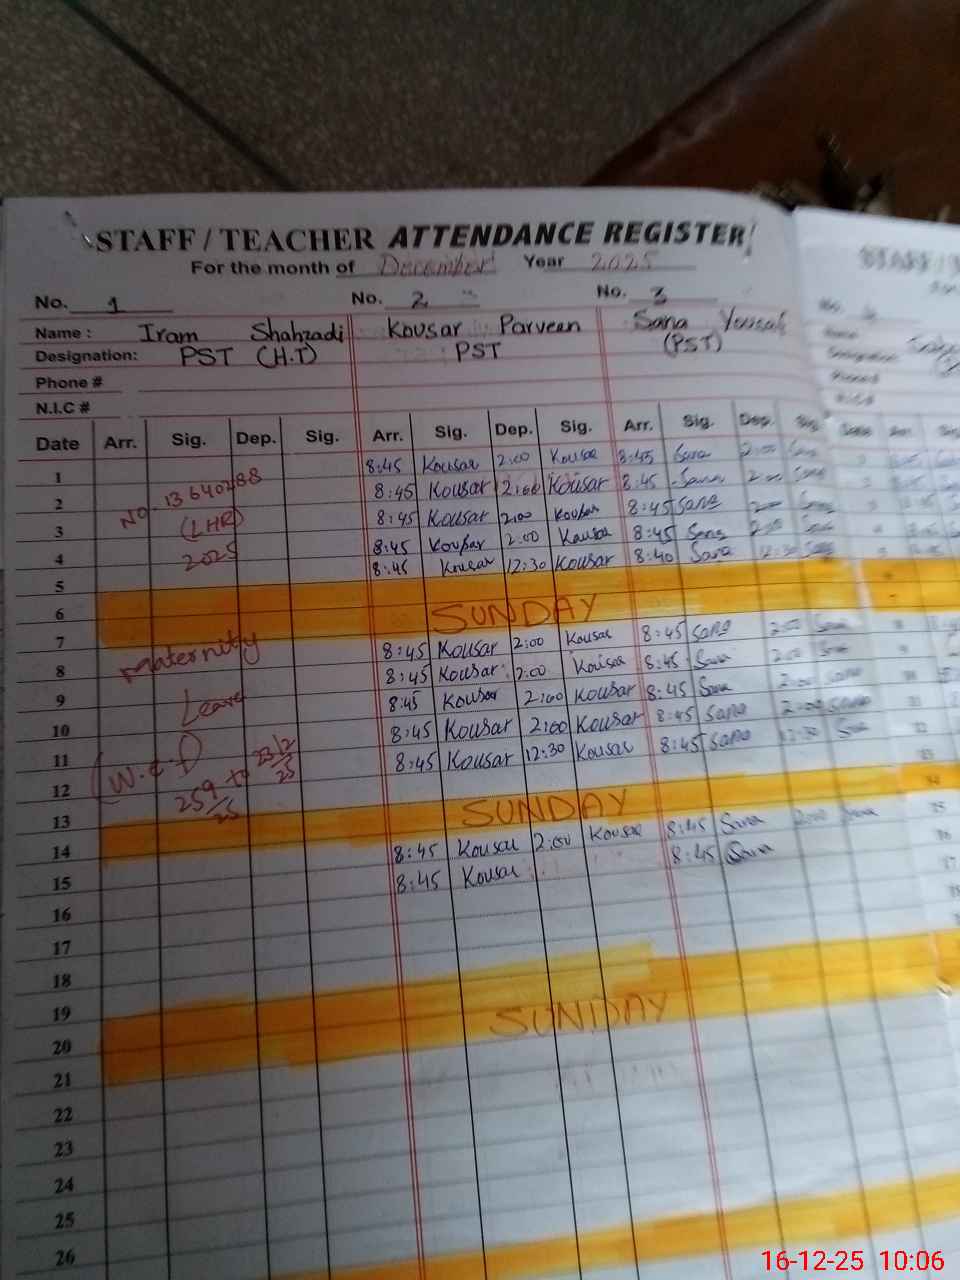 STAFF / TEACHER ATTENDANCE REGISTER
For the month of December Year 2025
No. 1 No. 2 No. 3
Name : Iram Shahzadi Kousar Parveen Sana Yousaf
Designation: PST (H.T) PST (PST)
Phone #
N.I.C #
Date Arr. Sig. Dep. Sig. Arr. Sig. Dep. Sig. Arr. Sig. Dep. Sig.
1 8:45 Kousar 2:00 Kousar 8:45 Sana 2:00 Sana
2 8:45 Kousar 2:00 Kousar 8:45 Sana 2:00 Sana
3 8:45 Kousar 2:00 Kousar 8:45 Sana 2:00 Sana
4 8:45 Kousar 2:00 Kousar 8:45 Sana 2:00 Sana
5 8:45 Kousar 12:30 Kousar 8:40 Sana 12:30 Sana
No. 13640288
(LHR)
2025
6 SUNDAY
7
8 8:45 Kousar 2:00 Kousar 8:45 Sana 2:00 Sana
9 8:45 Kousar 2:00 Kousar 8:45 Sana 2:00 Sana
10 8:45 Kousar 2:00 Kousar 8:45 Sana 2:00 Sana
11 8:45 Kousar 2:00 Kousar 8:45 Sana 2:00 Sana
12 8:45 Kousar 12:30 Kousar 8:45 Sana 12:30 Sana
Maternity
Leave
(W.e.f)
to
13 SUNDAY
14
15 8:45 Kousar 2:00 Kousar 8:45 Sana 2:00 Sana
16 8:45 Kousar 8:45 Sana
17
18
19
20 SUNDAY
21
22
23
24
25
26
16-12-25 10:06